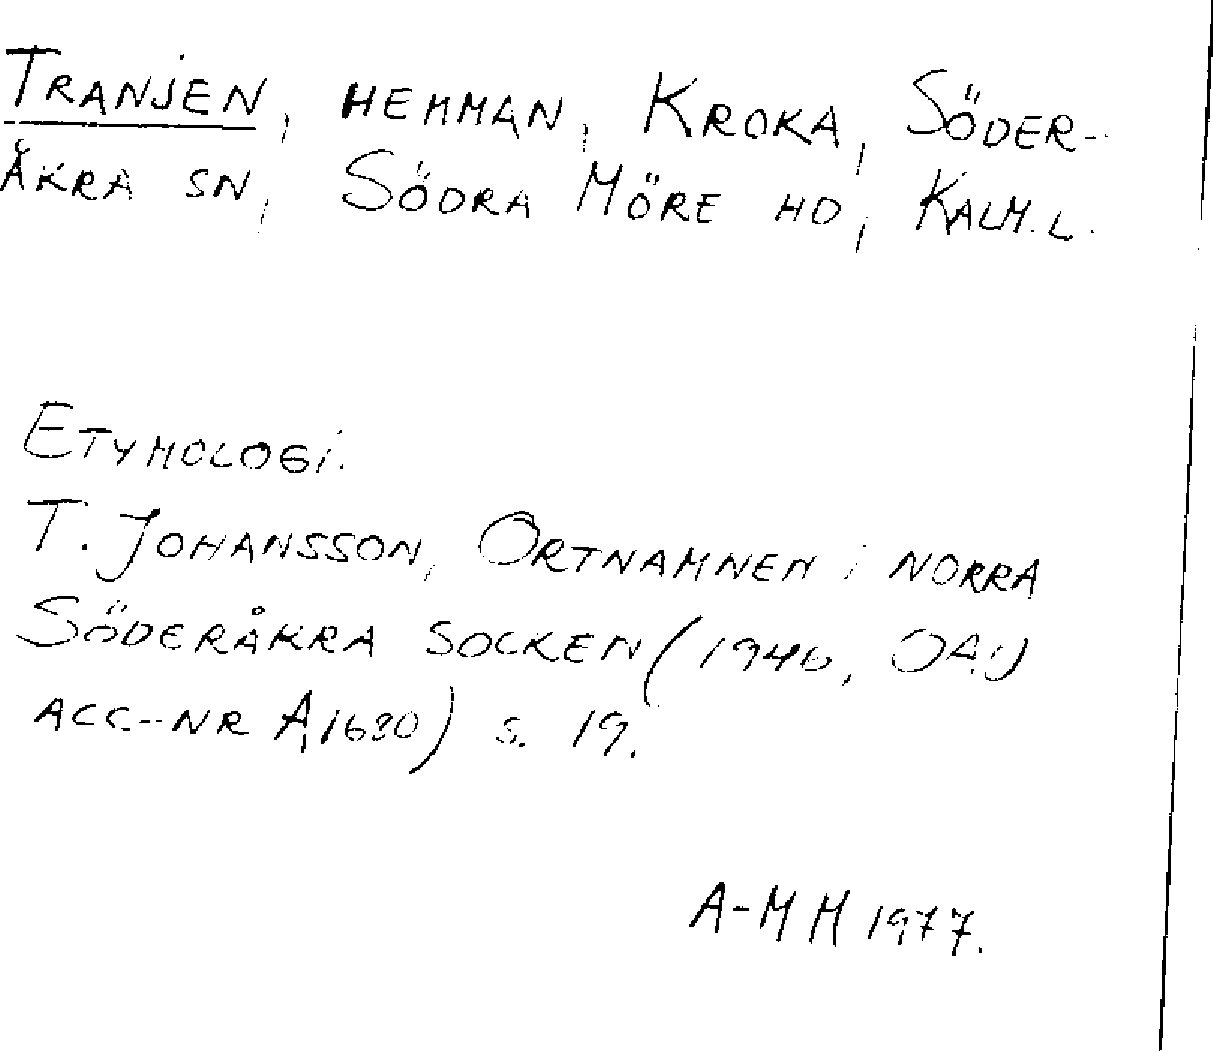 TRANJEN, HEMMAN, KROKA, SÖDER-
ÅKRA SN, SÖDRA MÖRE HD, KALM. L.
ETYMOLOGI.
T. JOHANSSON, ORTNAMNEN i NORRA
SÖDERÅKRA SOCKEN (1946, OAU
ACC-NR A,1680) S. 19.
A-MH 1977.